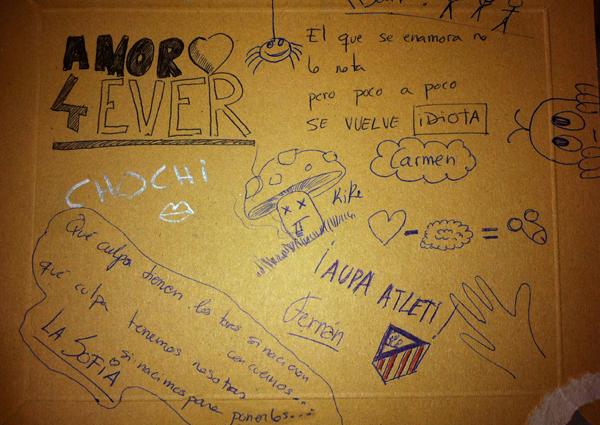 AMOR
4 EVER
El que se enamora no
lo nota
pero poco a poco
SE VUELVE IDIOTA
Carmen
CHOCHI
KiKe
Qué culpa tienen los toros si nacieron
con cuernos...
qué culpa tenemos nosotras
si nacimos para ponerlos...
LA SOFíA
- =
¡AUPA ATLETI!
Fernán